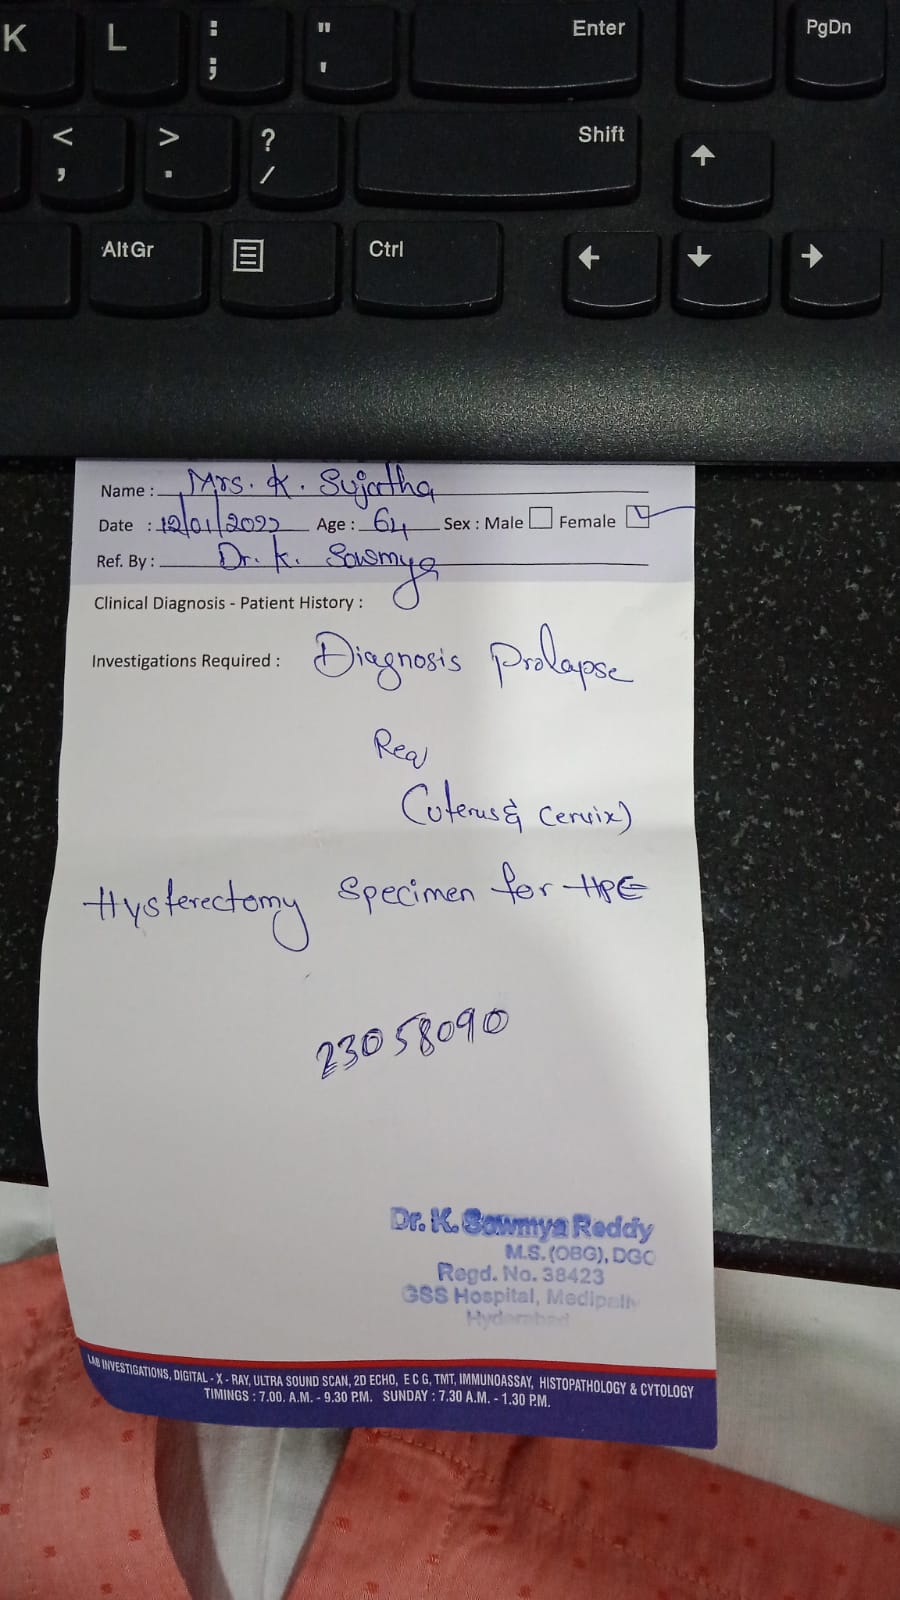 K L : ; " ' Enter PgDn
< , > . ? / Shift
AltGr Ctrl
Name : Mrs. K. Sujatha
Date : 12/01/2022 Age : 64 Sex : Male Female
Ref. By : Dr. K. Sowmya
Clinical Diagnosis - Patient History :
Investigations Required : Diagnosis Prolapse
Req
(uterus & cervix)
Hysterectomy Specimen for HPE
23058090
Dr. K. Sowmya Reddy
M.S. (OBG), DGO
Regd. No. 38423
GSS Hospital, Medipally
Hyderabad
LAB INVESTIGATIONS, DIGITAL - X - RAY, ULTRA SOUND SCAN, 2D ECHO, E C G, TMT, IMMUNOASSAY, HISTOPATHOLOGY & CYTOLOGY
TIMINGS : 7.00. A.M. - 9.30 P.M. SUNDAY : 7.30 A.M. - 1.30 P.M.